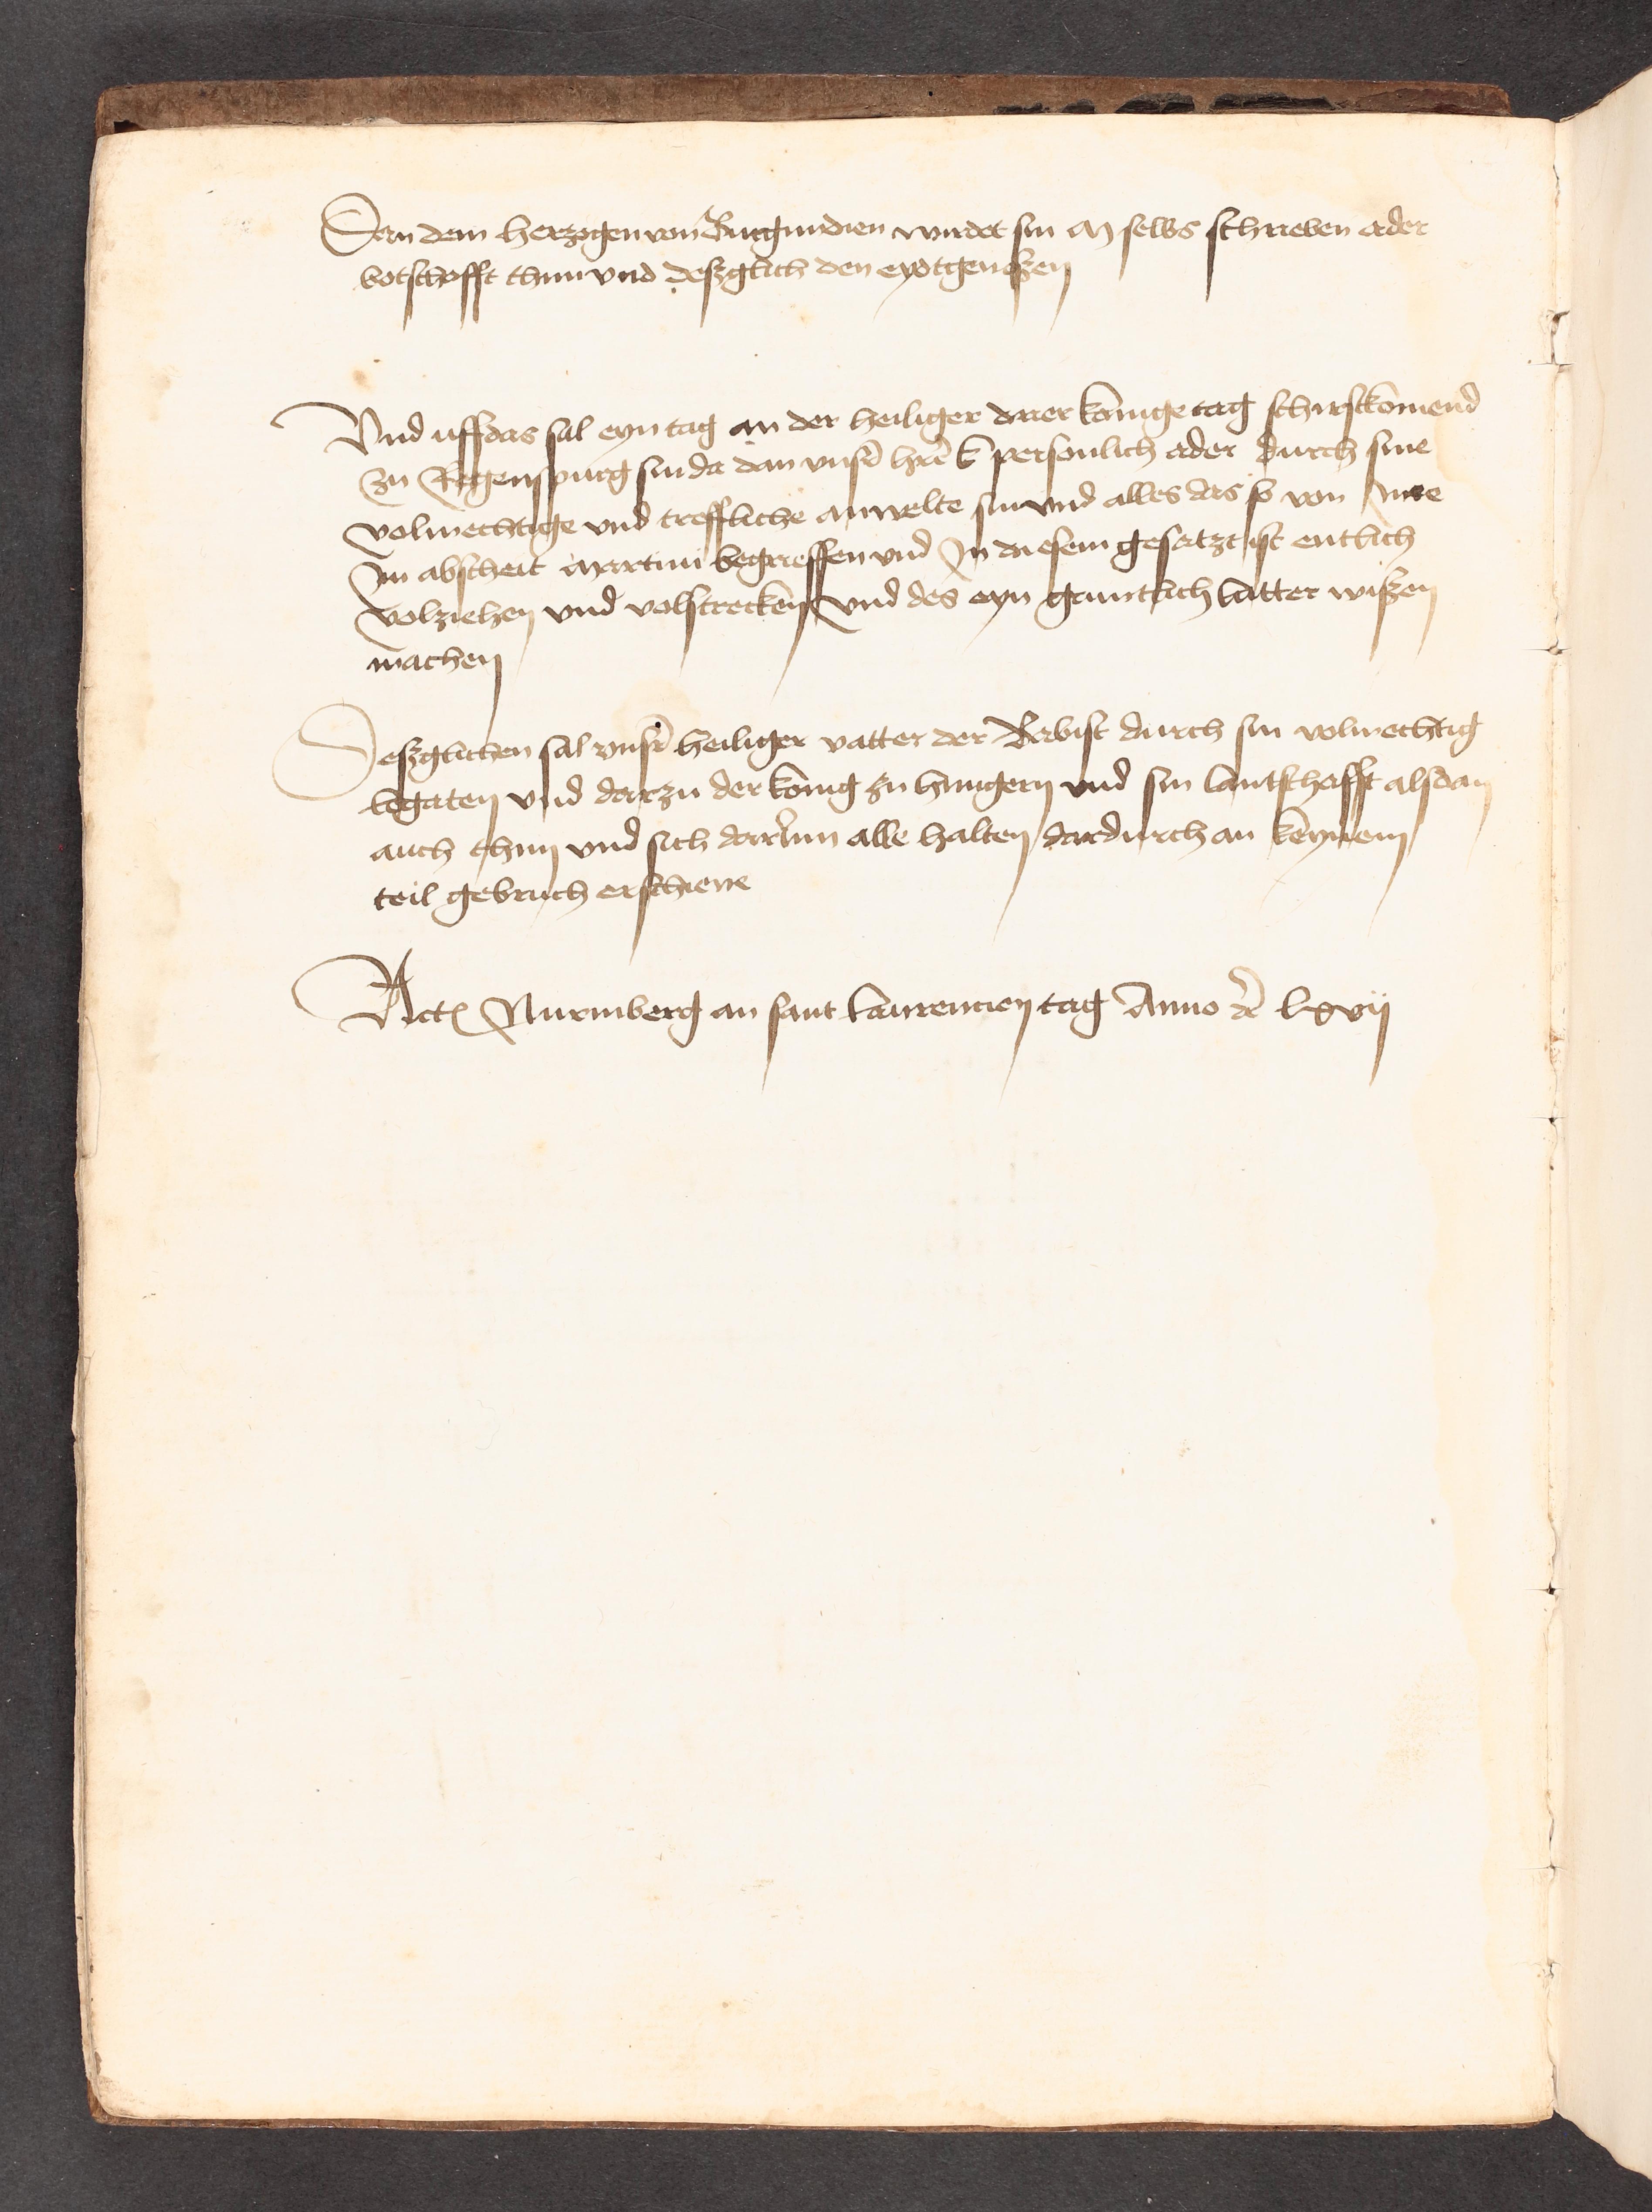 Dan dem herzogen von Burgundien wurdet sin M selbs schrieben ader
botschafft thun vnd deßglich den eydtgenoßen
Vnd uffdas sal eyn tag an der heiliger drier konige tag schirstkomend
zu Regenspurg sin da dan vnsr̃ hr̃e k̃ personlich ader durch sine
volmechtige vnd treffliche anwelte sin vnd alles das so von Ime
Im abscheit Martini begrieffen vnd In diesem gesatzt ist entlich
volziehen vnd volstrecken vnd des eyn gruntlich lutter wißen
machen
Deßglichen sal vnsr̃ heiliger vatter der Babist durch sin volmechtig
legaten vnd darzu der konig zu hungern vnd sin lantschafft alsdan
auch thun vnd sich darInn alle halten dardurch an keynem
teil gebruch erschiene
Act Nurmberg an sant laurencien tag Anno &c lxvij